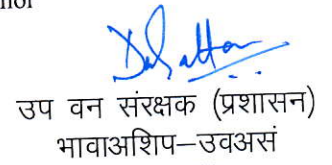 उप वन संरक्षक (प्रशासन)
भावाअशिप–उवअसं